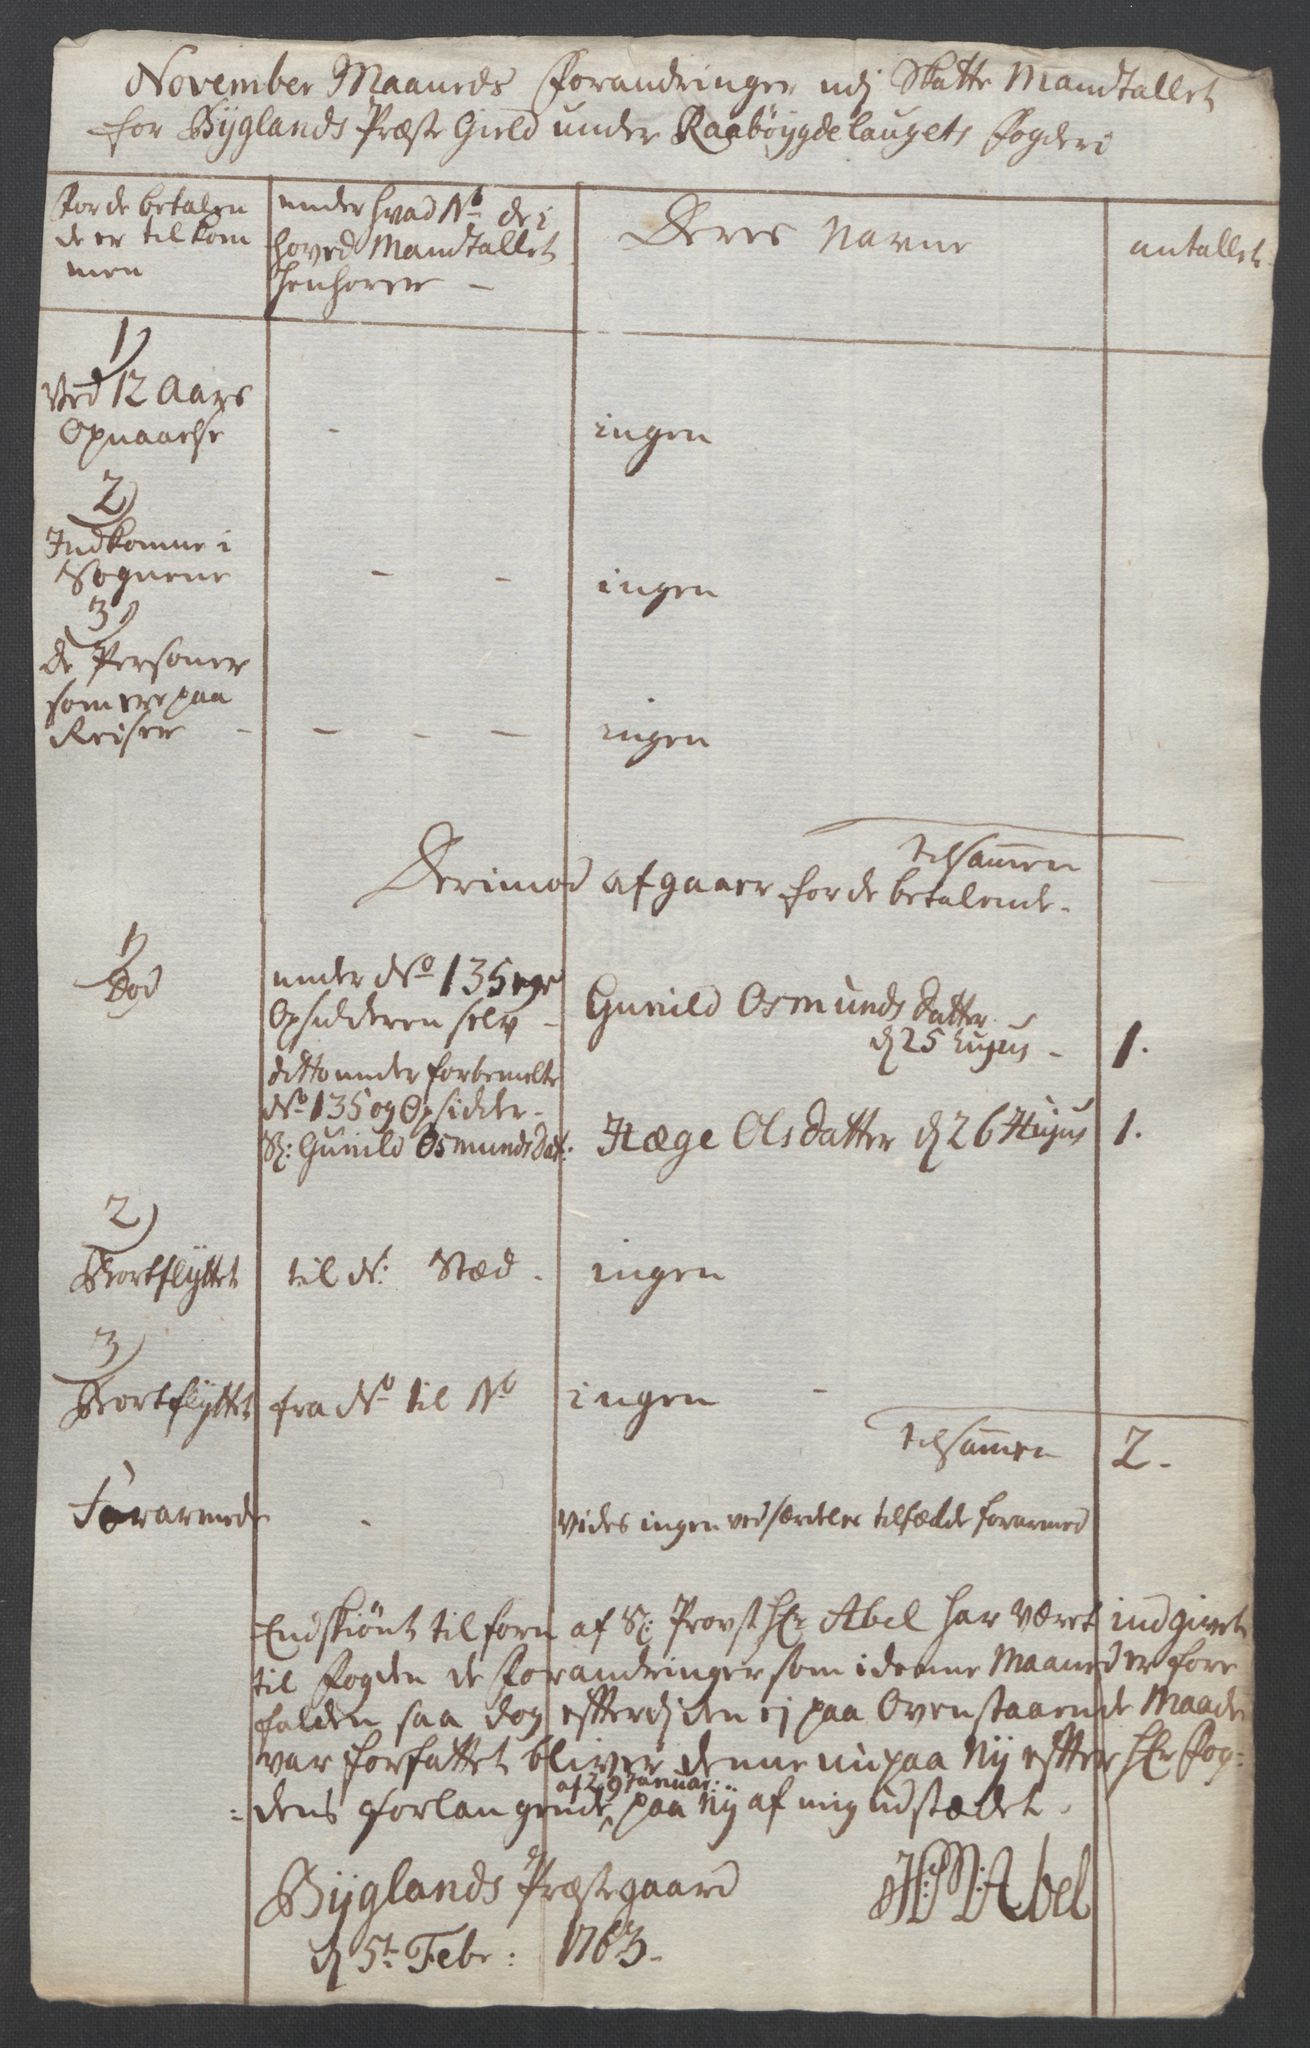 November Maaneds Forandringer udj Skatte Mandtallet
for Byglands Præste Gield under Raabøygdelaugets Fogderi
For de betalen
de er tilkom
men
under hvad No de i
Hoved Mandtallet
henhører -
Deres Navne
antallet
1)
Ved 12 Aars
Opnaaelse
-
ingen
2)
Indkomne i
Sognene
- -
ingen
3)
de Personer
som ere paa
Reiser -
- - -
ingen
tilsammen
Derimod afgaaer for de betalende.
1)
Død
under No 135
Opsidderen selv -
Gunild Osmunds datter
d 25 hujus -
1.
ditto under forbemelte
No 135 og Opsidder-
Sl: Gunild OsmundsDat:
Hæge Olsdatter d 26 Hujus
1.
2)
Bortflyttet
til N: Stæd.
ingen
3)
Bortflyttet
fra No til No
ingen -
tilsammen
2.
Forarmede
-
Vides ingen ved særdeles tilfælde forarmed
Endskiønt tilforn af Sl: Provst Hr Abel har været indgivet
til Fogden de Forandringer som i denne Maaned er fore
falden saa dog efterdj den ej paa Ovenstaaende Maade
var forfattet bliver denne nu paa Ny efter Hr Fog=
=dens forlangende af 29 Januar: paa Ny af mig udstædet.
Byglands Præstegaard
H: M: Abel
d 5t Febr: 1763.